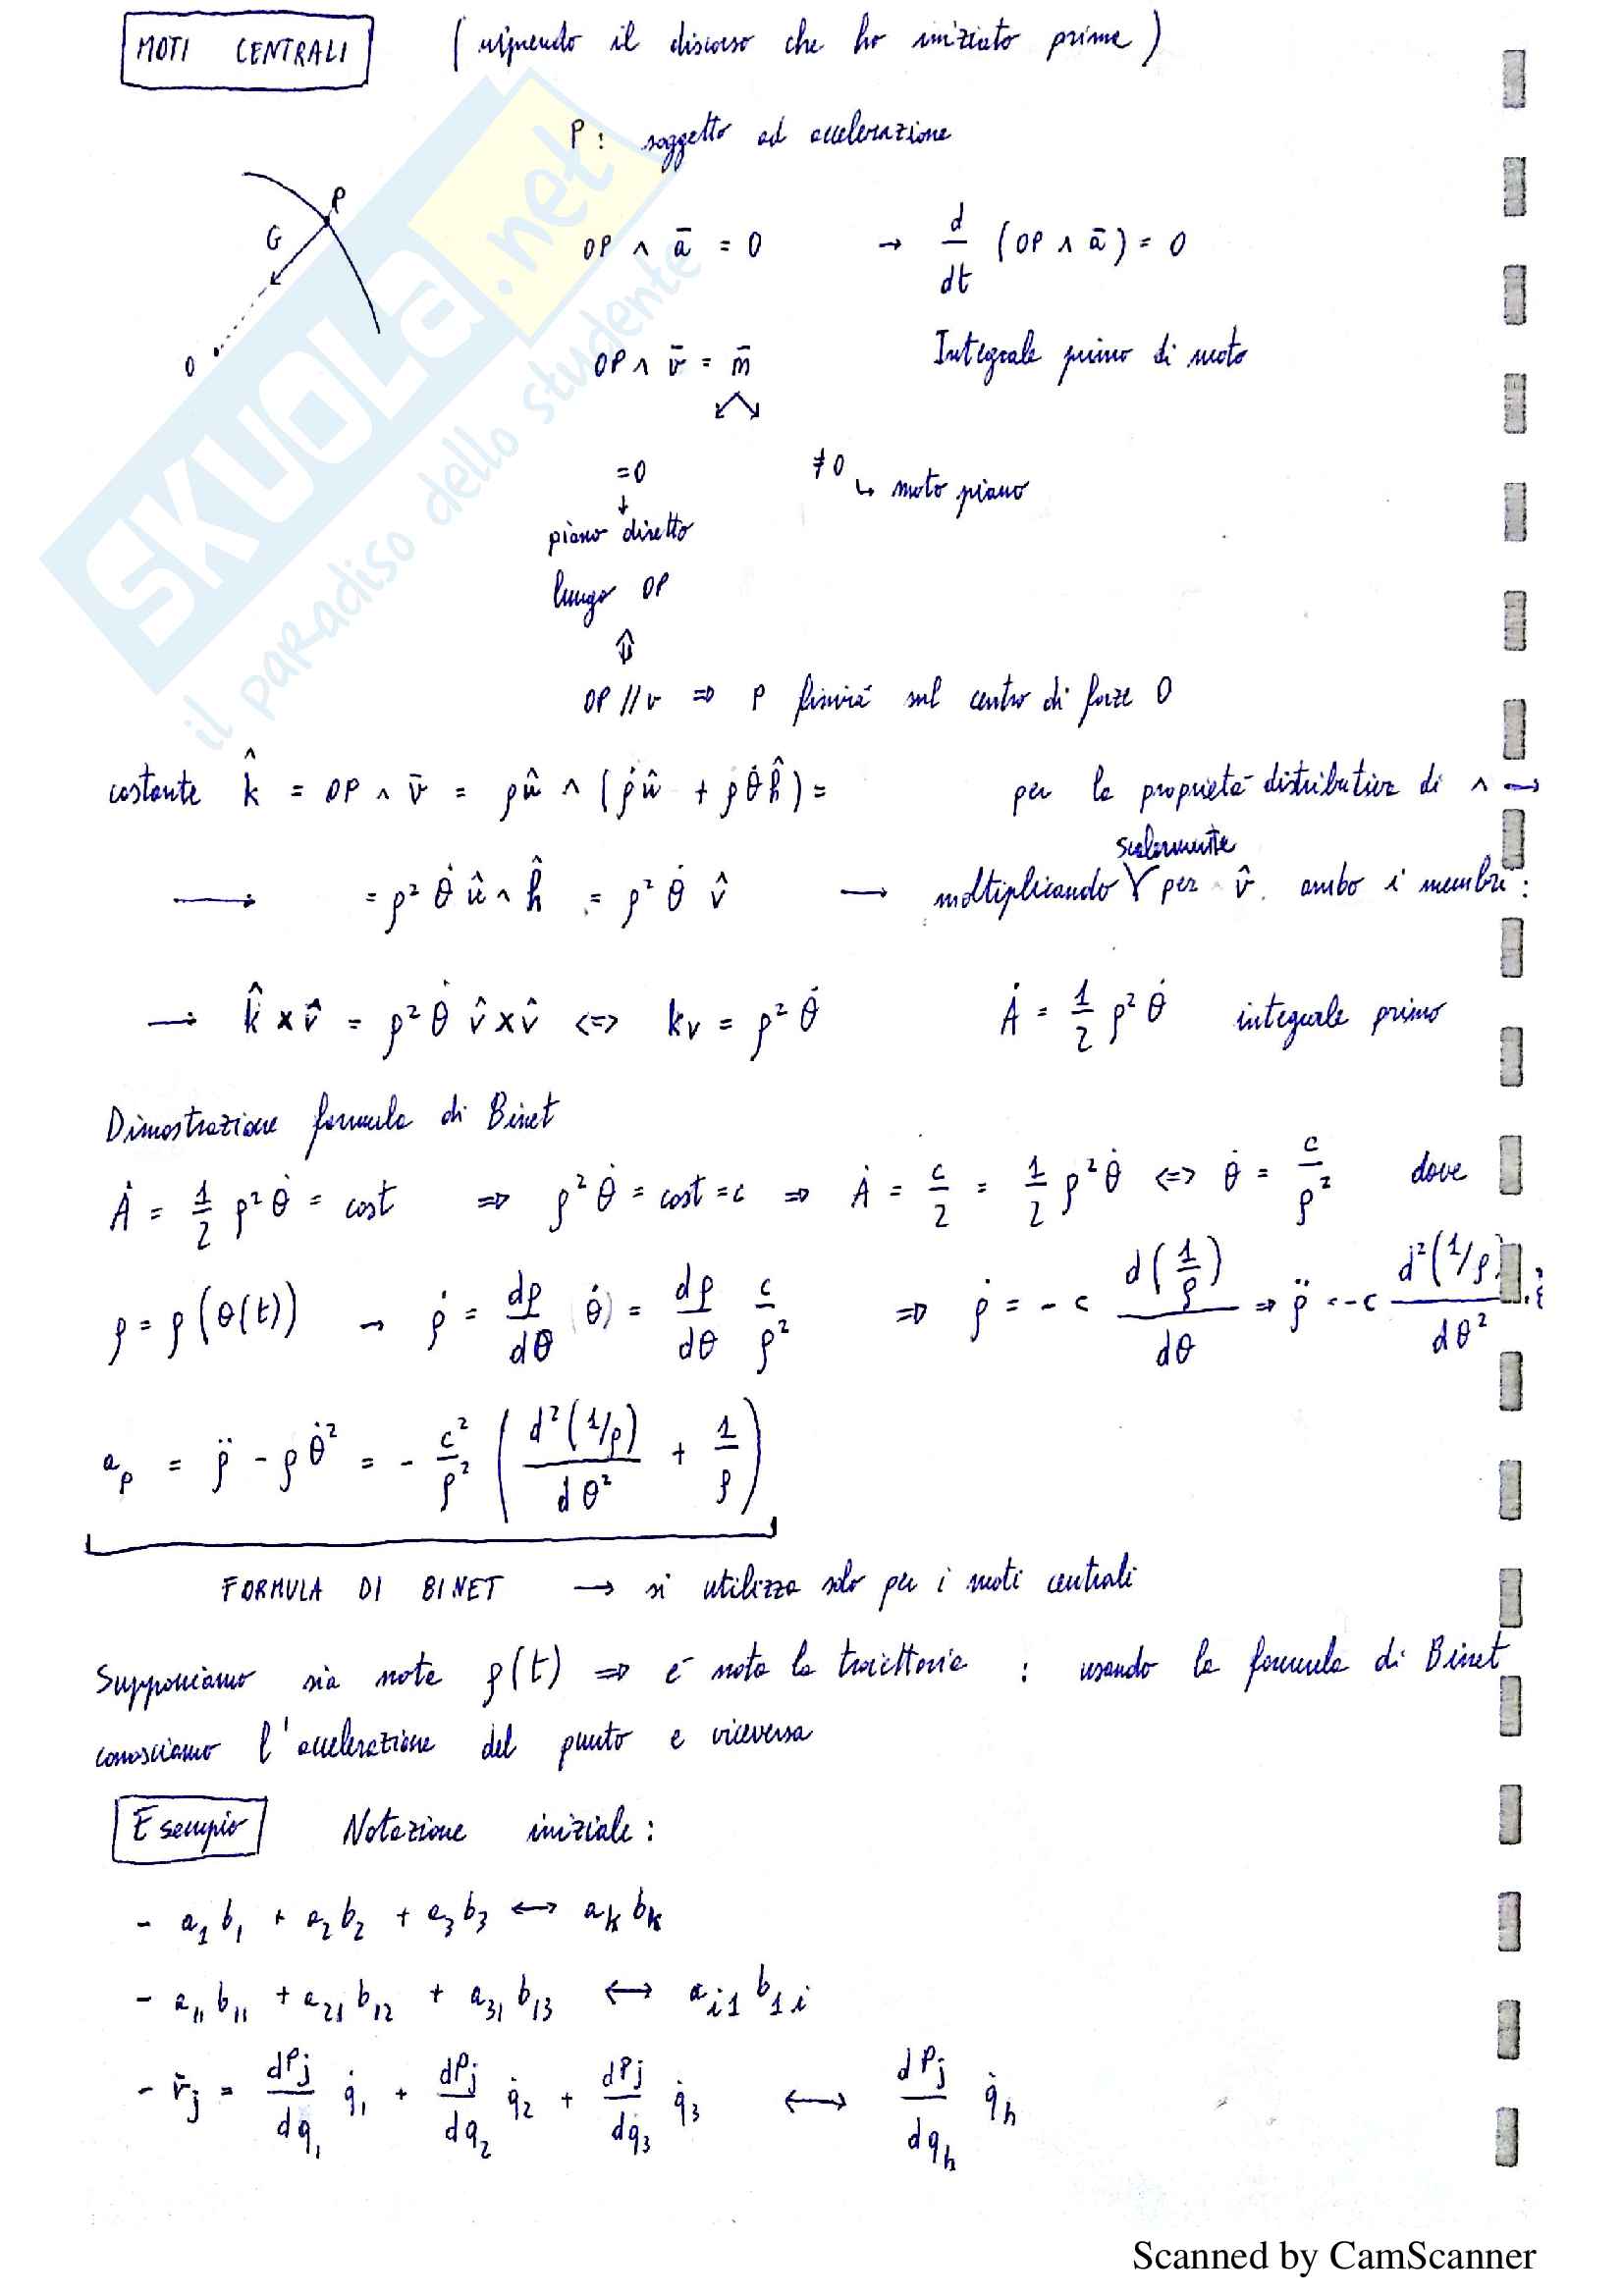 MOTI CENTRALI (riprendo il discorso che ho iniziato prima)
P: soggetto ad accelerazione
P
G
O
OP ∧ a̅ = 0 → d/dt (OP ∧ a̅) = 0
OP ∧ v̅ = m̅ Integrale primo di moto
=0 ≠0 ↳ moto piano
↓
piano diretto
lungo OP
⇕
OP // v ⇒ P finirà sul centro di forze O
costante k̂ = OP ∧ v̅ = ρû ∧ (ρ̇û + ρθ̇ĥ) = per la proprietà distributiva di ∧ →
→ = ρ² θ̇ û ∧ ĥ = ρ² θ̇ v̂ → moltiplicando scalarmente per v̂ ambo i membri:
→ k̂ × v̂ = ρ² θ̇ v̂ × v̂ <=> kv = ρ² θ̇ Ȧ = 1/2 ρ² θ̇ integrale primo
Dimostrazione formula di Binet
Ȧ = 1/2 ρ² θ̇ = cost ⇒ ρ² θ̇ = cost = c ⇒ Ȧ = c/2 = 1/2 ρ² θ̇ <=> θ̇ = c/ρ² dove
ρ = ρ(θ(t)) → ρ̇ = dρ/dθ (θ̇) = dρ/dθ c/ρ² ⇒ ρ̇ = - c d(1/ρ)/dθ ⇒ ρ̈ = -c d²(1/ρ)/dθ²
a_ρ = ρ̈ - ρθ̇² = - c²/ρ² (d²(1/ρ)/dθ² + 1/ρ)
FORMULA DI BINET → si utilizza solo per i moti centrali
Supponiamo sia nota ρ(t) ⇒ è nota la traiettoria : usando la formula di Binet
conosciamo l'accelerazione del punto e viceversa
Esempio Notazione iniziale:
- a₁b₁ + a₂b₂ + a₃b₃ ↔ a_k b_k
- a₁₁b₁₁ + a₂₁b₁₂ + a₃₁b₁₃ ↔ a_i1 b_1i
- v̅_j = dP_j/dq₁ q̇₁ + dP_j/dq₂ q̇₂ + dP_j/dq₃ q̇₃ ↔ dP_j/dq_h q̇_h
SKUOLA.net
il paradiso dello studente
Scanned by CamScanner